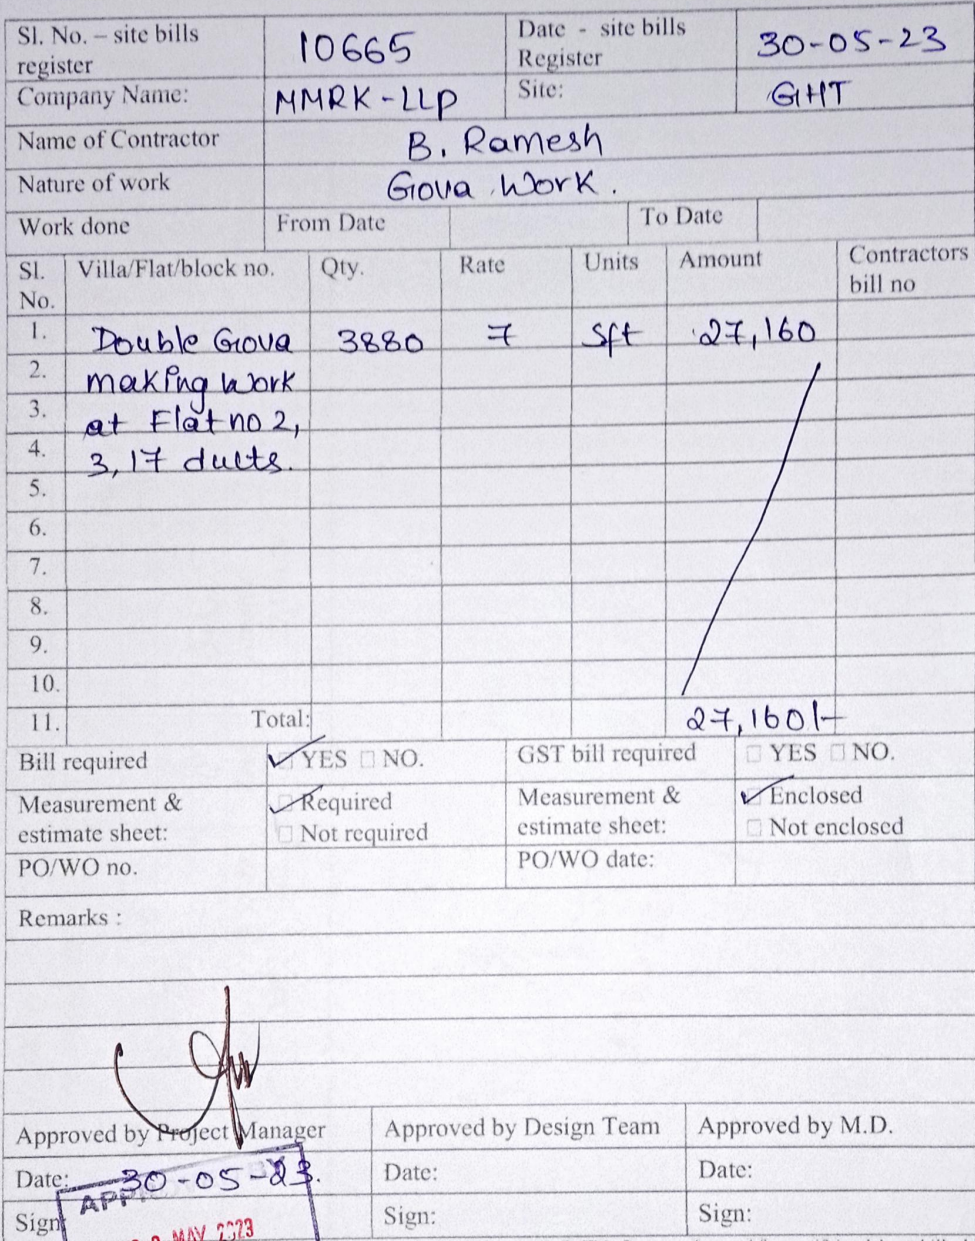 Sl. No. – site bills register 10665 Date - site bills Register 30-05-23
Company Name: MMRK-LLP Site: GHT
Name of Contractor B. Ramesh
Nature of work Gova work.
Work done From Date To Date
Sl. No. Villa/Flat/block no. Qty. Rate Units Amount Contractors bill no
1. Double Gova 3880 7 Sft 27,160
2. making work
3. at Flat no 2,
4. 3, 17 ducts.
5.
6.
7.
8.
9.
10.
11. Total: 27,160/-
Bill required ☑ YES ☐ NO. GST bill required ☐ YES ☐ NO.
Measurement & estimate sheet: ☑ Required ☐ Not required Measurement & estimate sheet: ☑ Enclosed ☐ Not enclosed
PO/WO no. PO/WO date:
Remarks :
Approved by Project Manager Approved by Design Team Approved by M.D.
Date: 30-05-23. Date: Date:
Sign: Sign: Sign:
MAY 2023